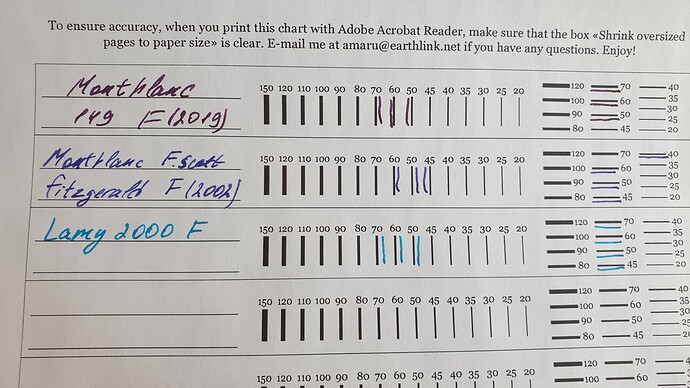 To ensure accuracy, when you print this chart with Adobe Acrobat Reader, make sure that the box «Shrink oversized
pages to paper size» is clear. E-mail me at amaru@earthlink.net if you have any questions. Enjoy!
Montblanc
149 F (2019)
150 120 110 100 90 80 70 60 50 45 40 35 30 25 20
120 70 40
100 60 35
30
90 50 25
80 45 20
Montblanc F. Scott
Fitzgerald F (2002)
150 120 110 100 90 80 70 60 50 45 40 35 30 25 20
120 70 40
100 60 35
30
90 50 25
80 45 20
Lamy 2000 F
150 120 110 100 90 80 70 60 50 45 40 35 30 25 20
120 70 40
100 60 35
30
90 50 25
80 45 20
150 120 110 100 90 80 70 60 50 45 40 35 30 25 20
120 70 40
100 60 35
30
90 50 25
80 45 20
150 120 110 100 90 80 70 60 50 45 40 35 30 25 20
120 70
100 60